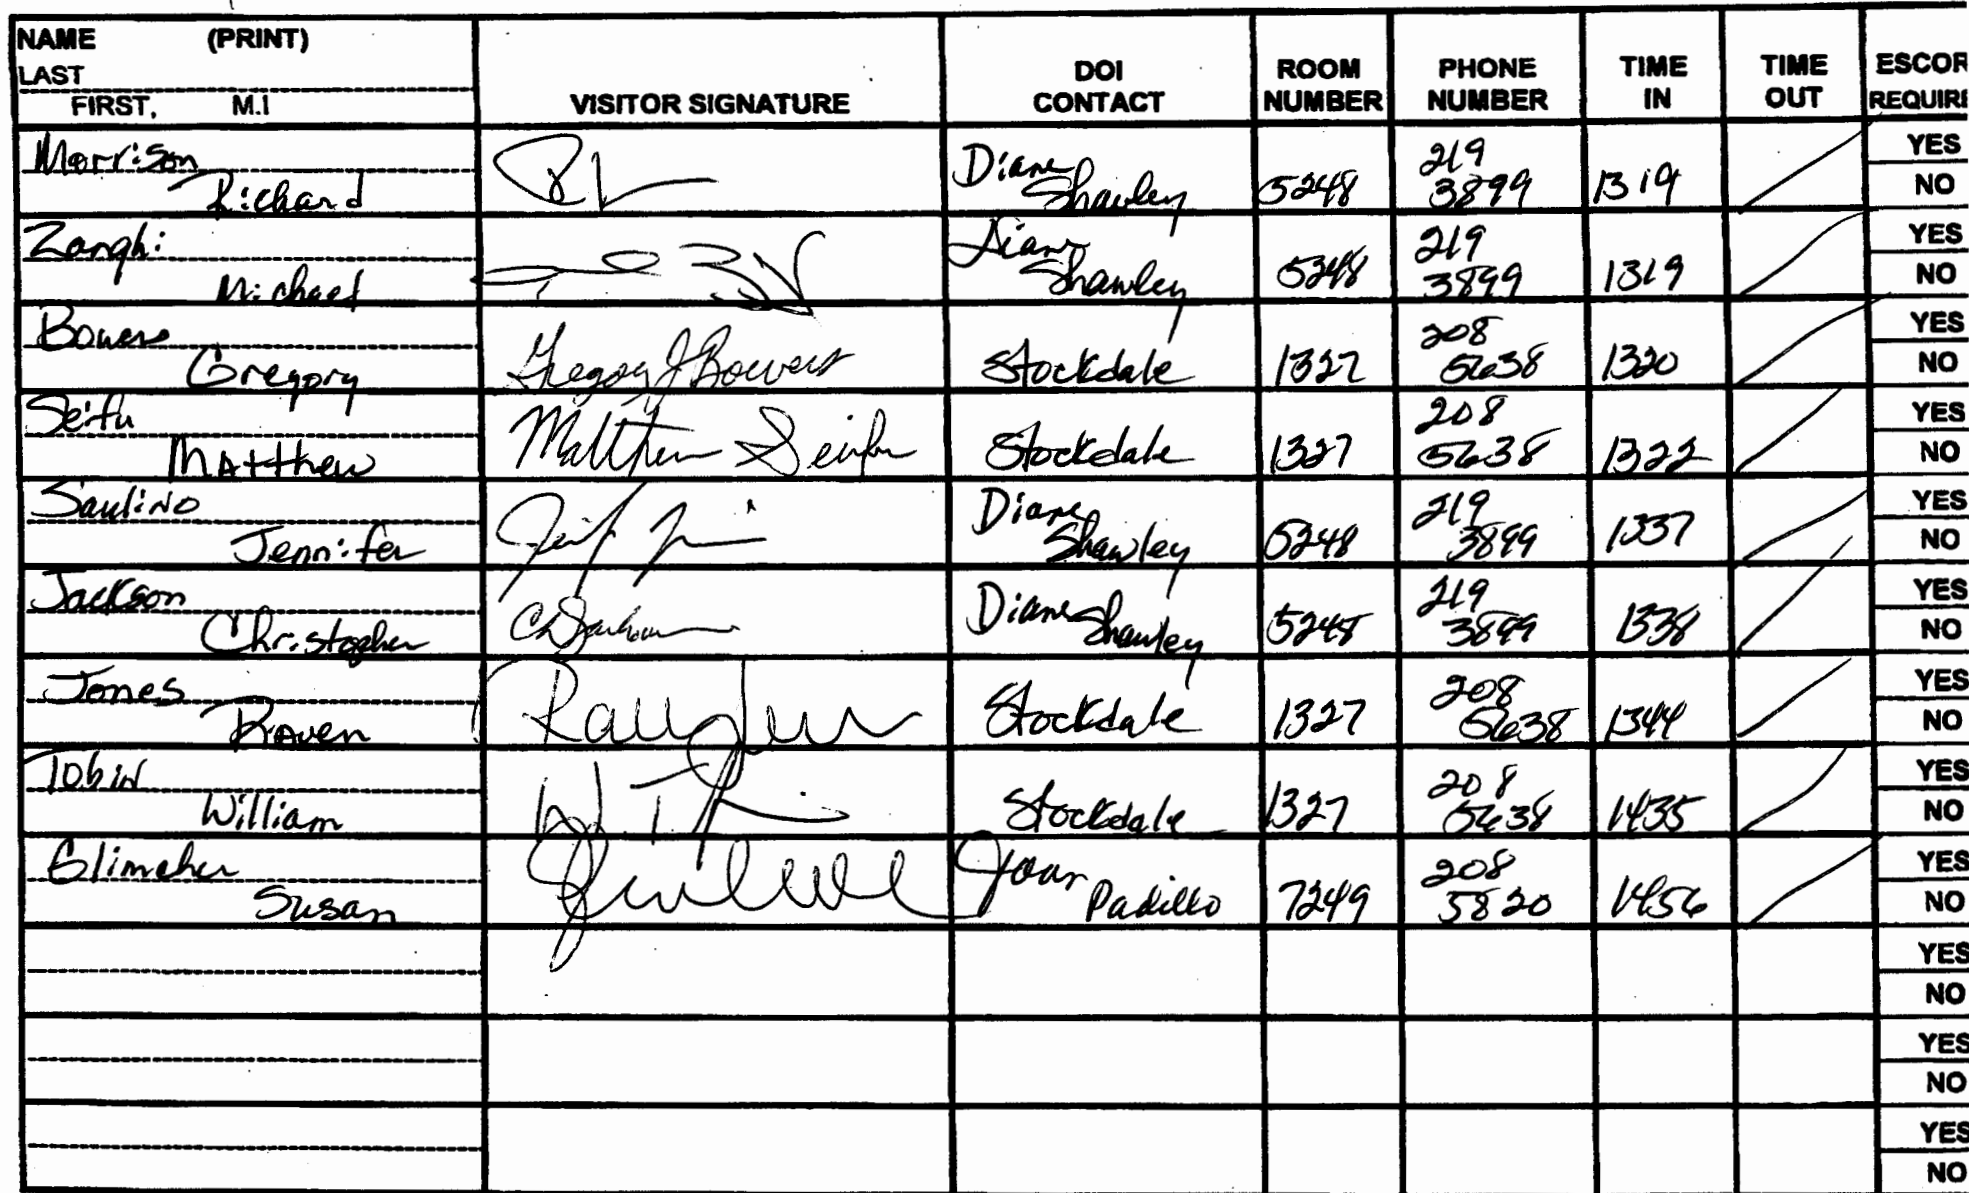 NAME (PRINT)
LAST
FIRST, M.I
VISITOR SIGNATURE
DOI
CONTACT
ROOM
NUMBER
PHONE
NUMBER
TIME
IN
TIME
OUT
ESCOR
REQUIRE
Morrison
Richard
Diane
Shawley
5248
219
3899
1319
YES
NO
Zanghi
Michael
Diane
Shawley
5248
219
3899
1319
YES
NO
Bowers
Gregory
Gregory J Bowers
Stockdale
1327
208
5638
1320
YES
NO
Seifu
Matthew
Matthew Seifu
Stockdale
1327
208
5638
1322
YES
NO
Saulino
Jennifer
Diane
Shawley
5248
219
3899
1337
YES
NO
Jackson
Christopher
Diane
Shawley
5248
219
3899
1338
YES
NO
Jones
Raven
Stockdale
1327
208
5638
1344
YES
NO
Tobin
William
Stockdale
1327
208
5638
1435
YES
NO
Glimcher
Susan
Joan
Padillo
7249
208
5820
1456
YES
NO
YES
NO
YES
NO
YES
NO